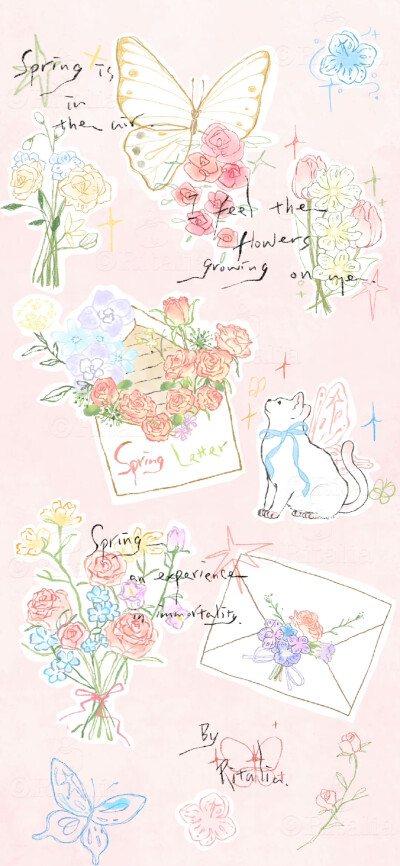 Spring is
in
the air.
I feel the
flowers
growing on me.
Spring Letter
Spring
an experience
in immortality.
By
Ritalia.